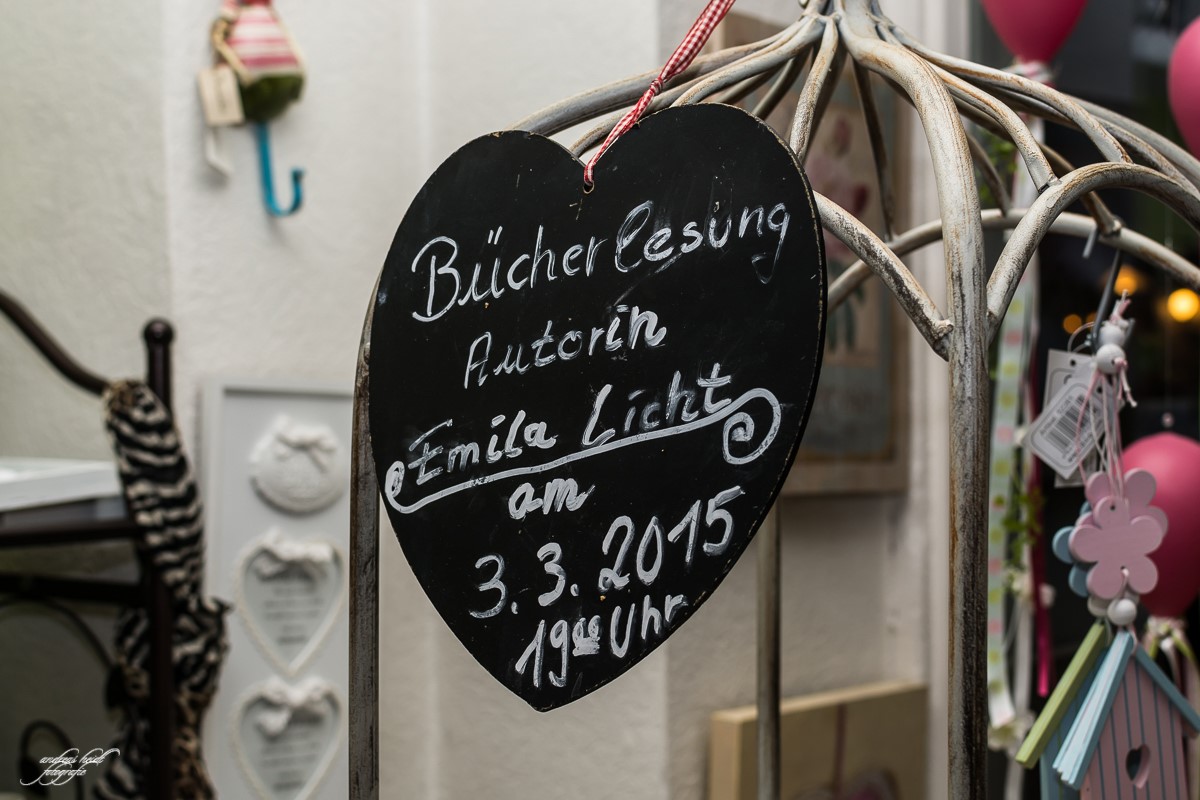 Bücherlesung
Autorin
Emila Licht
am
3.3.2015
19⁰⁰ Uhr
andreas heidl
fotografie